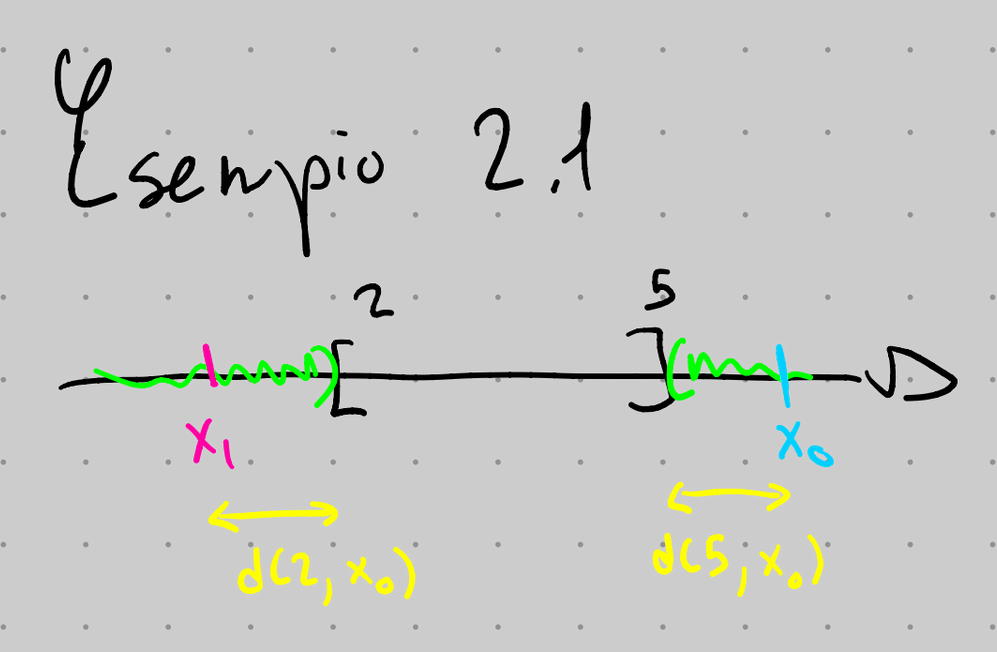 Esempio 2.1
2 5
[ ]
x₁ x₀
d(2, x₀) d(5, x₀)